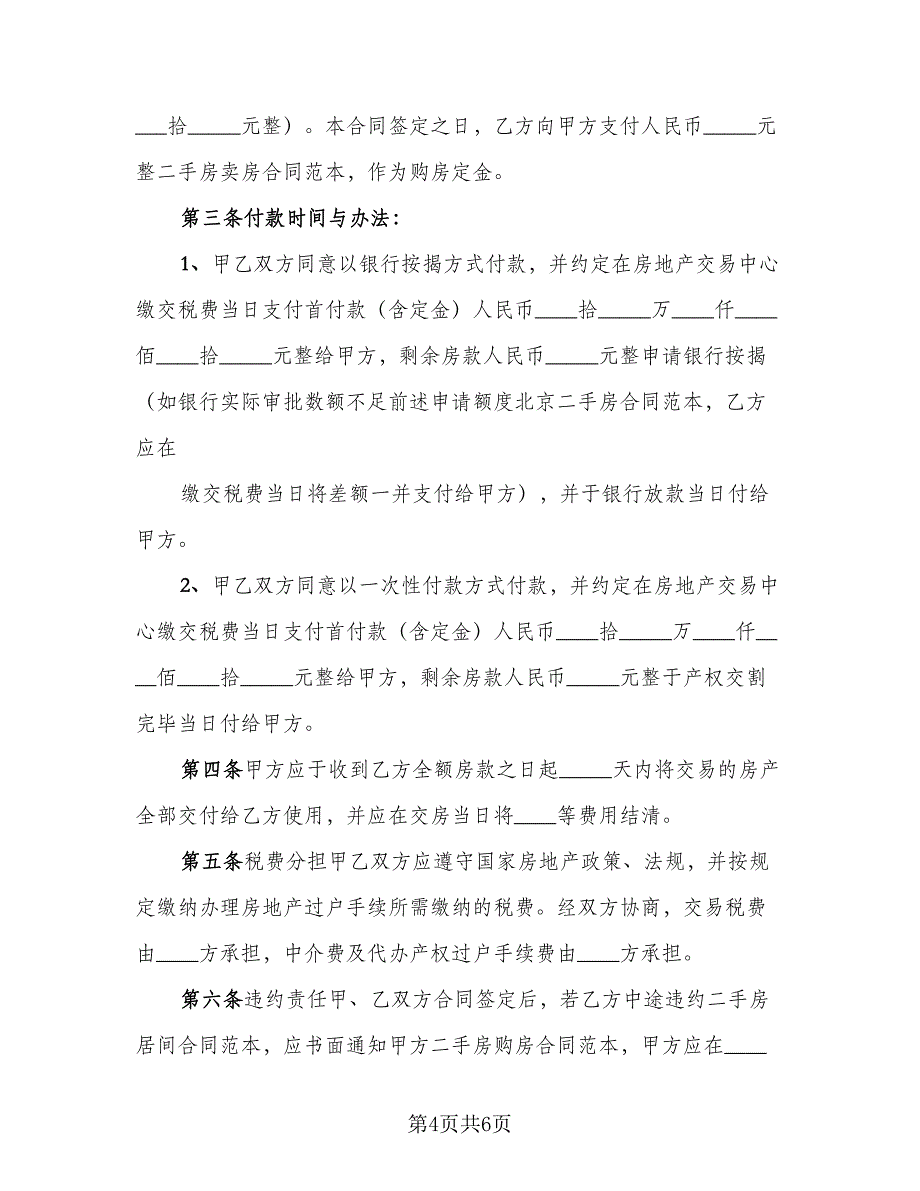 ___拾_____元整）。本合同签定之日，乙方向甲方支付人民币_____元
整二手房卖房合同范本，作为购房定金。
第三条付款时间与办法：
1、甲乙双方同意以银行按揭方式付款，并约定在房地产交易中心
缴交税费当日支付首付款（含定金）人民币____拾_____万____仟____
佰____拾_____元整给甲方，剩余房款人民币_____元整申请银行按揭
（如银行实际审批数额不足前述申请额度北京二手房合同范本，乙方
应在
缴交税费当日将差额一并支付给甲方），并于银行放款当日付给
甲方。
2、甲乙双方同意以一次性付款方式付款，并约定在房地产交易中
心缴交税费当日支付首付款（含定金）人民币____拾_____万____仟__
__佰____拾_____元整给甲方，剩余房款人民币_____元整于产权交割
完毕当日付给甲方。
第四条甲方应于收到乙方全额房款之日起_____天内将交易的房产
全部交付给乙方使用，并应在交房当日将____等费用结清。
第五条税费分担甲乙双方应遵守国家房地产政策、法规，并按规
定缴纳办理房地产过户手续所需缴纳的税费。经双方协商，交易税费
由____方承担，中介费及代办产权过户手续费由____方承担。
第六条违约责任甲、乙双方合同签定后，若乙方中途违约二手房
居间合同范本，应书面通知甲方二手房购房合同范本，甲方应在____
第4页共6页